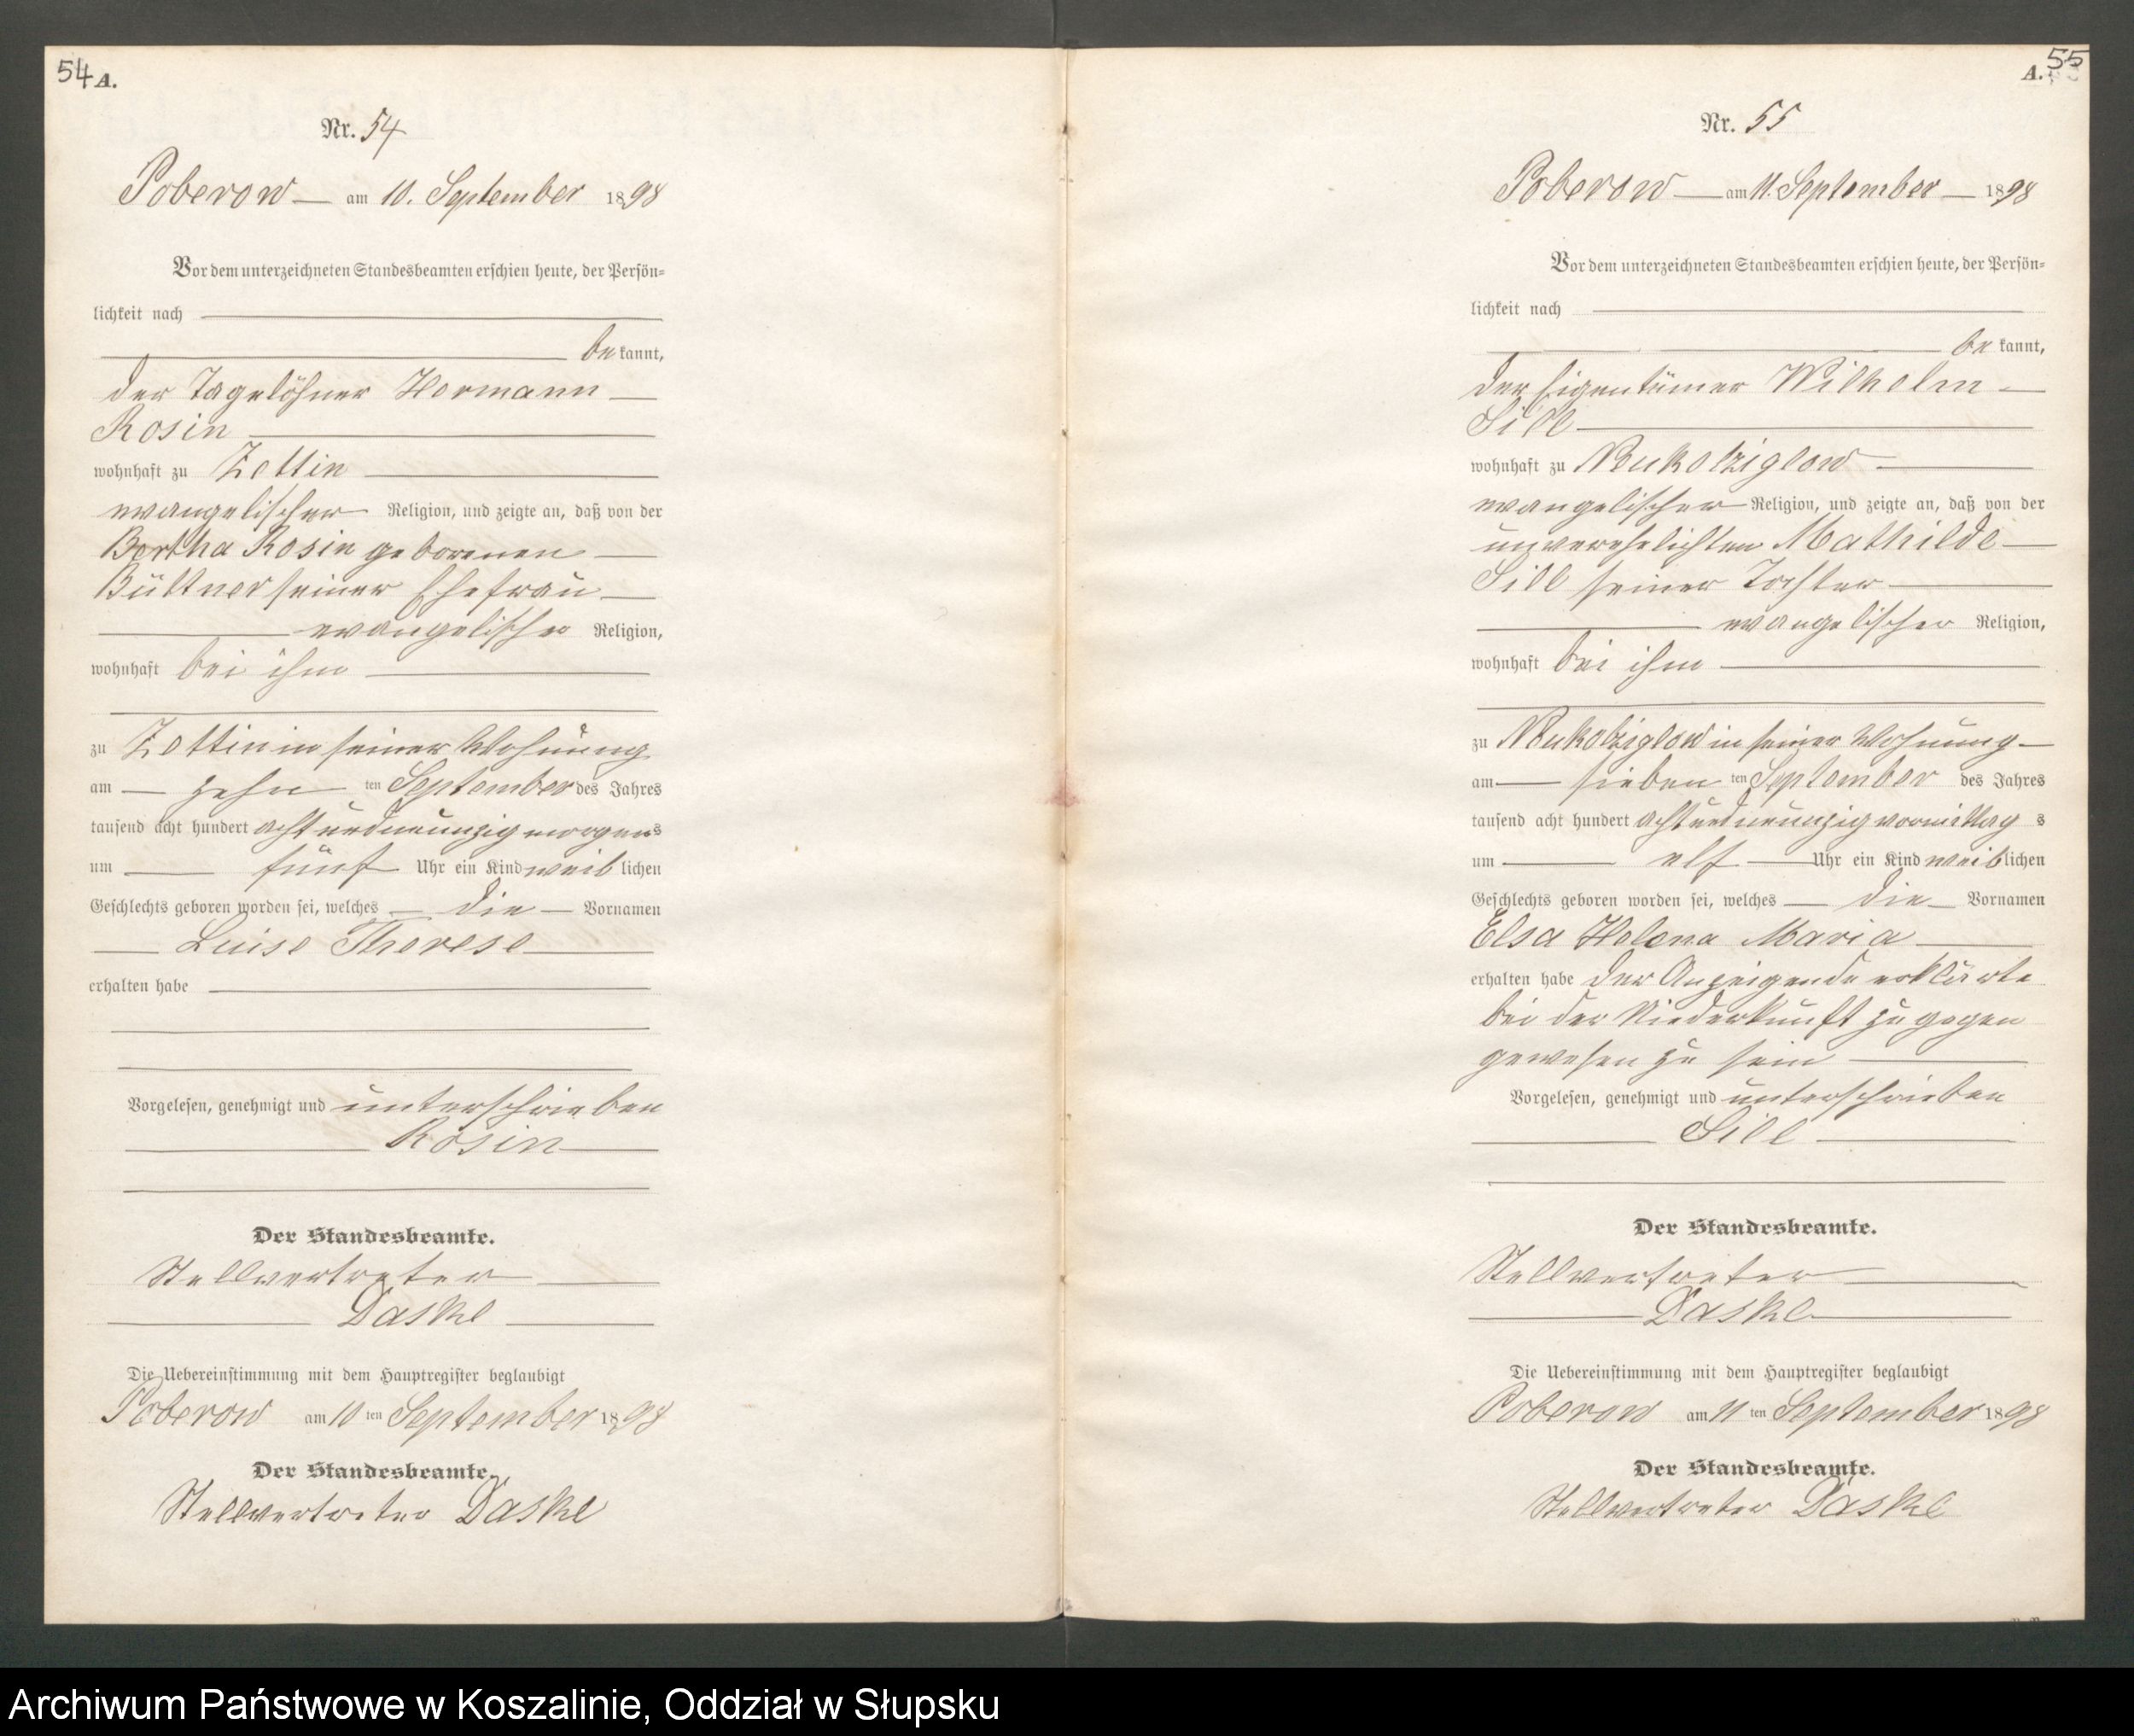 54 A.
Nr. 54
Poberow am 10. September 1898
Vor dem unterzeichneten Standesbeamten erschien heute, der Persön=
lichkeit nach
be kannt,
der Tagelöhner Hermann
Rosin
wohnhaft zu Zettin
evangelischer Religion, und zeigte an, daß von der
Bertha Rosin geborenen
Büttner seiner Ehefrau
evangelischer Religion,
wohnhaft bei ihm
zu Zettin in seiner Wohnung
am zehn ten September des Jahres
tausend acht hundert achtundneunzig morgens
um fünf Uhr ein Kind weiblichen
Geschlechts geboren worden sei, welches die Vornamen
Luise Therese
erhalten habe
Vorgelesen, genehmigt und unterschrieben
Rosin
Der Standesbeamte.
Stellvertreter
Daske
Die Uebereinstimmung mit dem Hauptregister beglaubigt
Poberow am 10 ten September 1898
Der Standesbeamte.
Stellvertreter Daske
A. 55
Nr. 55
Poberow am 11. September 1898
Vor dem unterzeichneten Standesbeamten erschien heute, der Persön=
lichkeit nach
be kannt,
der Eigentümer Wilhelm
Sill
wohnhaft zu Neukolziglow
evangelischer Religion, und zeigte an, daß von der
unverehelichten Mathilde
Sill seiner Tochter
evangelischer Religion,
wohnhaft bei ihm
zu Neukolziglow in seiner Wohnung
am sieben ten September des Jahres
tausend acht hundert achtundneunzig vormittags
um elf Uhr ein Kind weiblichen
Geschlechts geboren worden sei, welches die Vornamen
Elsa Helena Maria
erhalten habe der Anzeigende erklärte
bei der Niederkunft zugegen
gewesen zu sein
Vorgelesen, genehmigt und unterschrieben
Sill
Der Standesbeamte.
Stellvertreter
Daske
Die Uebereinstimmung mit dem Hauptregister beglaubigt
Poberow am 11 ten September 1898
Der Standesbeamte.
Stellvertreter Daske
Archiwum Państwowe w Koszalinie, Oddział w Słupsku